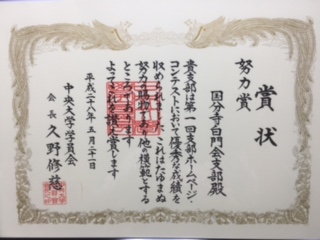 賞状
努力賞
国分寺白門会支部殿
貴支部は第一回支部ホームページ・
コンテストにおいて優秀な成績を
収められました これはたゆまぬ
努力の賜物であり他の模範とする
ところであります
よってこれを讃え賞します
平成二十八年 五月二十一日
中央大学学員会
会長 久野修慈